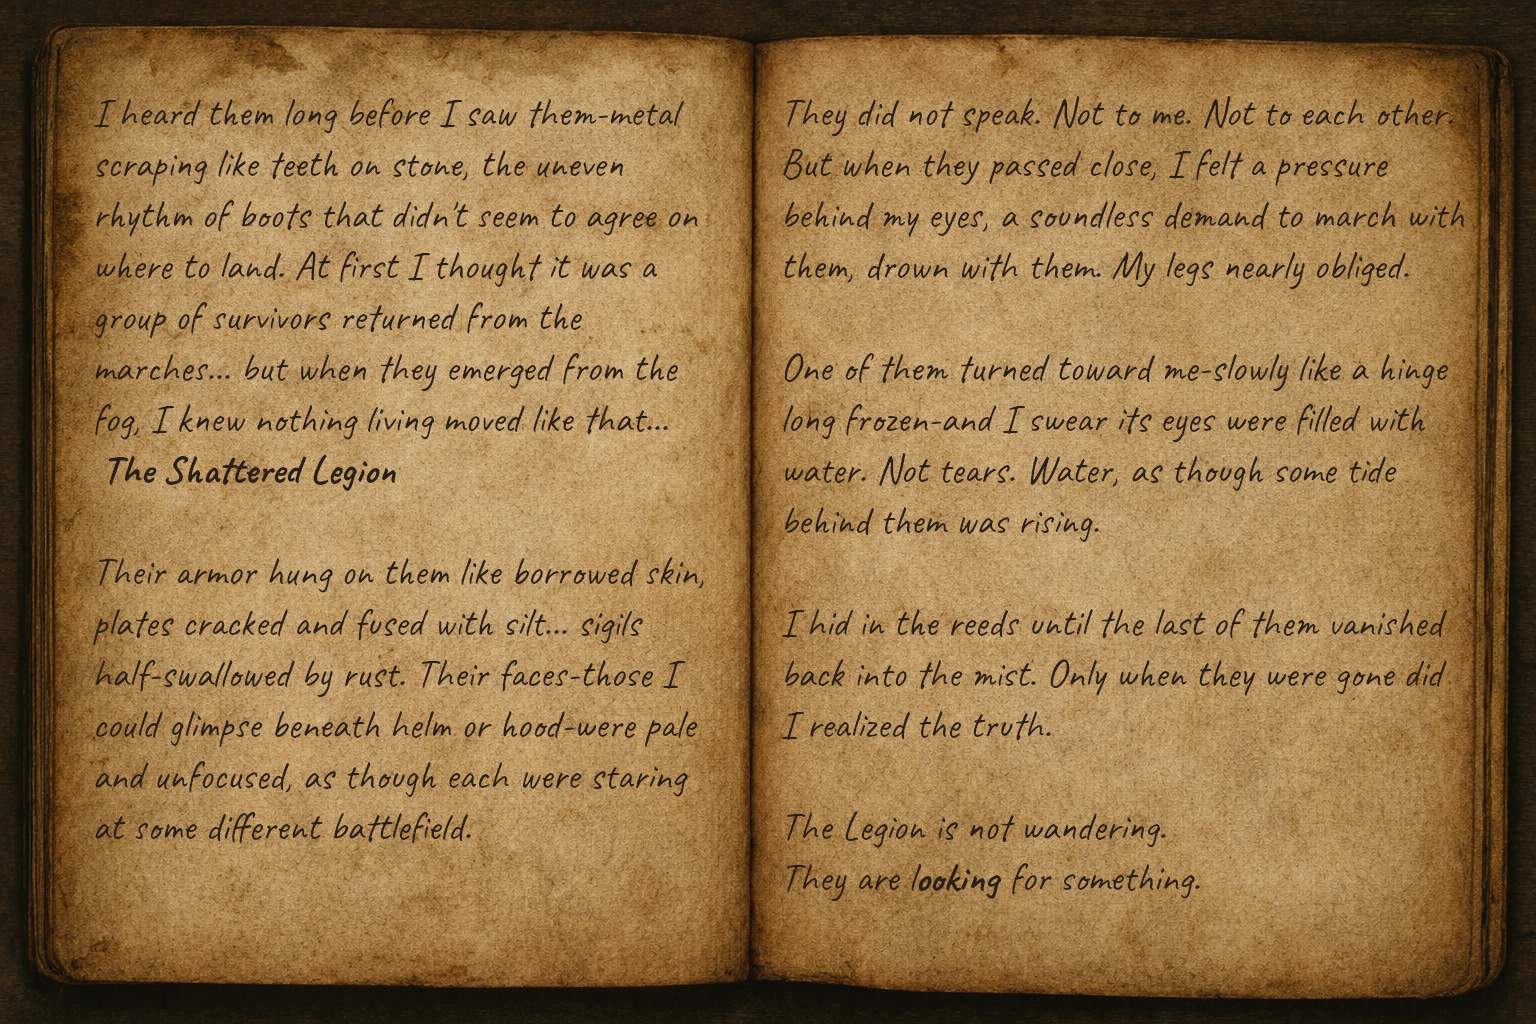 I heard them long before I saw them-metal
scraping like teeth on stone, the uneven
rhythm of boots that didn't seem to agree on
where to land. At first I thought it was a
group of survivors returned from the
marches... but when they emerged from the
fog, I knew nothing living moved like that...
The Shattered Legion
Their armor hung on them like borrowed skin,
plates cracked and fused with silt... sigils
half-swallowed by rust. Their faces-those I
could glimpse beneath helm or hood-were pale
and unfocused, as though each were staring
at some different battlefield.
They did not speak. Not to me. Not to each other.
But when they passed close, I felt a pressure
behind my eyes, a soundless demand to march with
them, drown with them. My legs nearly obliged.
One of them turned toward me-slowly like a hinge
long frozen-and I swear its eyes were filled with
water. Not tears. Water, as though some tide
behind them was rising.
I hid in the reeds until the last of them vanished
back into the mist. Only when they were gone did
I realized the truth.
The Legion is not wandering.
They are looking for something.